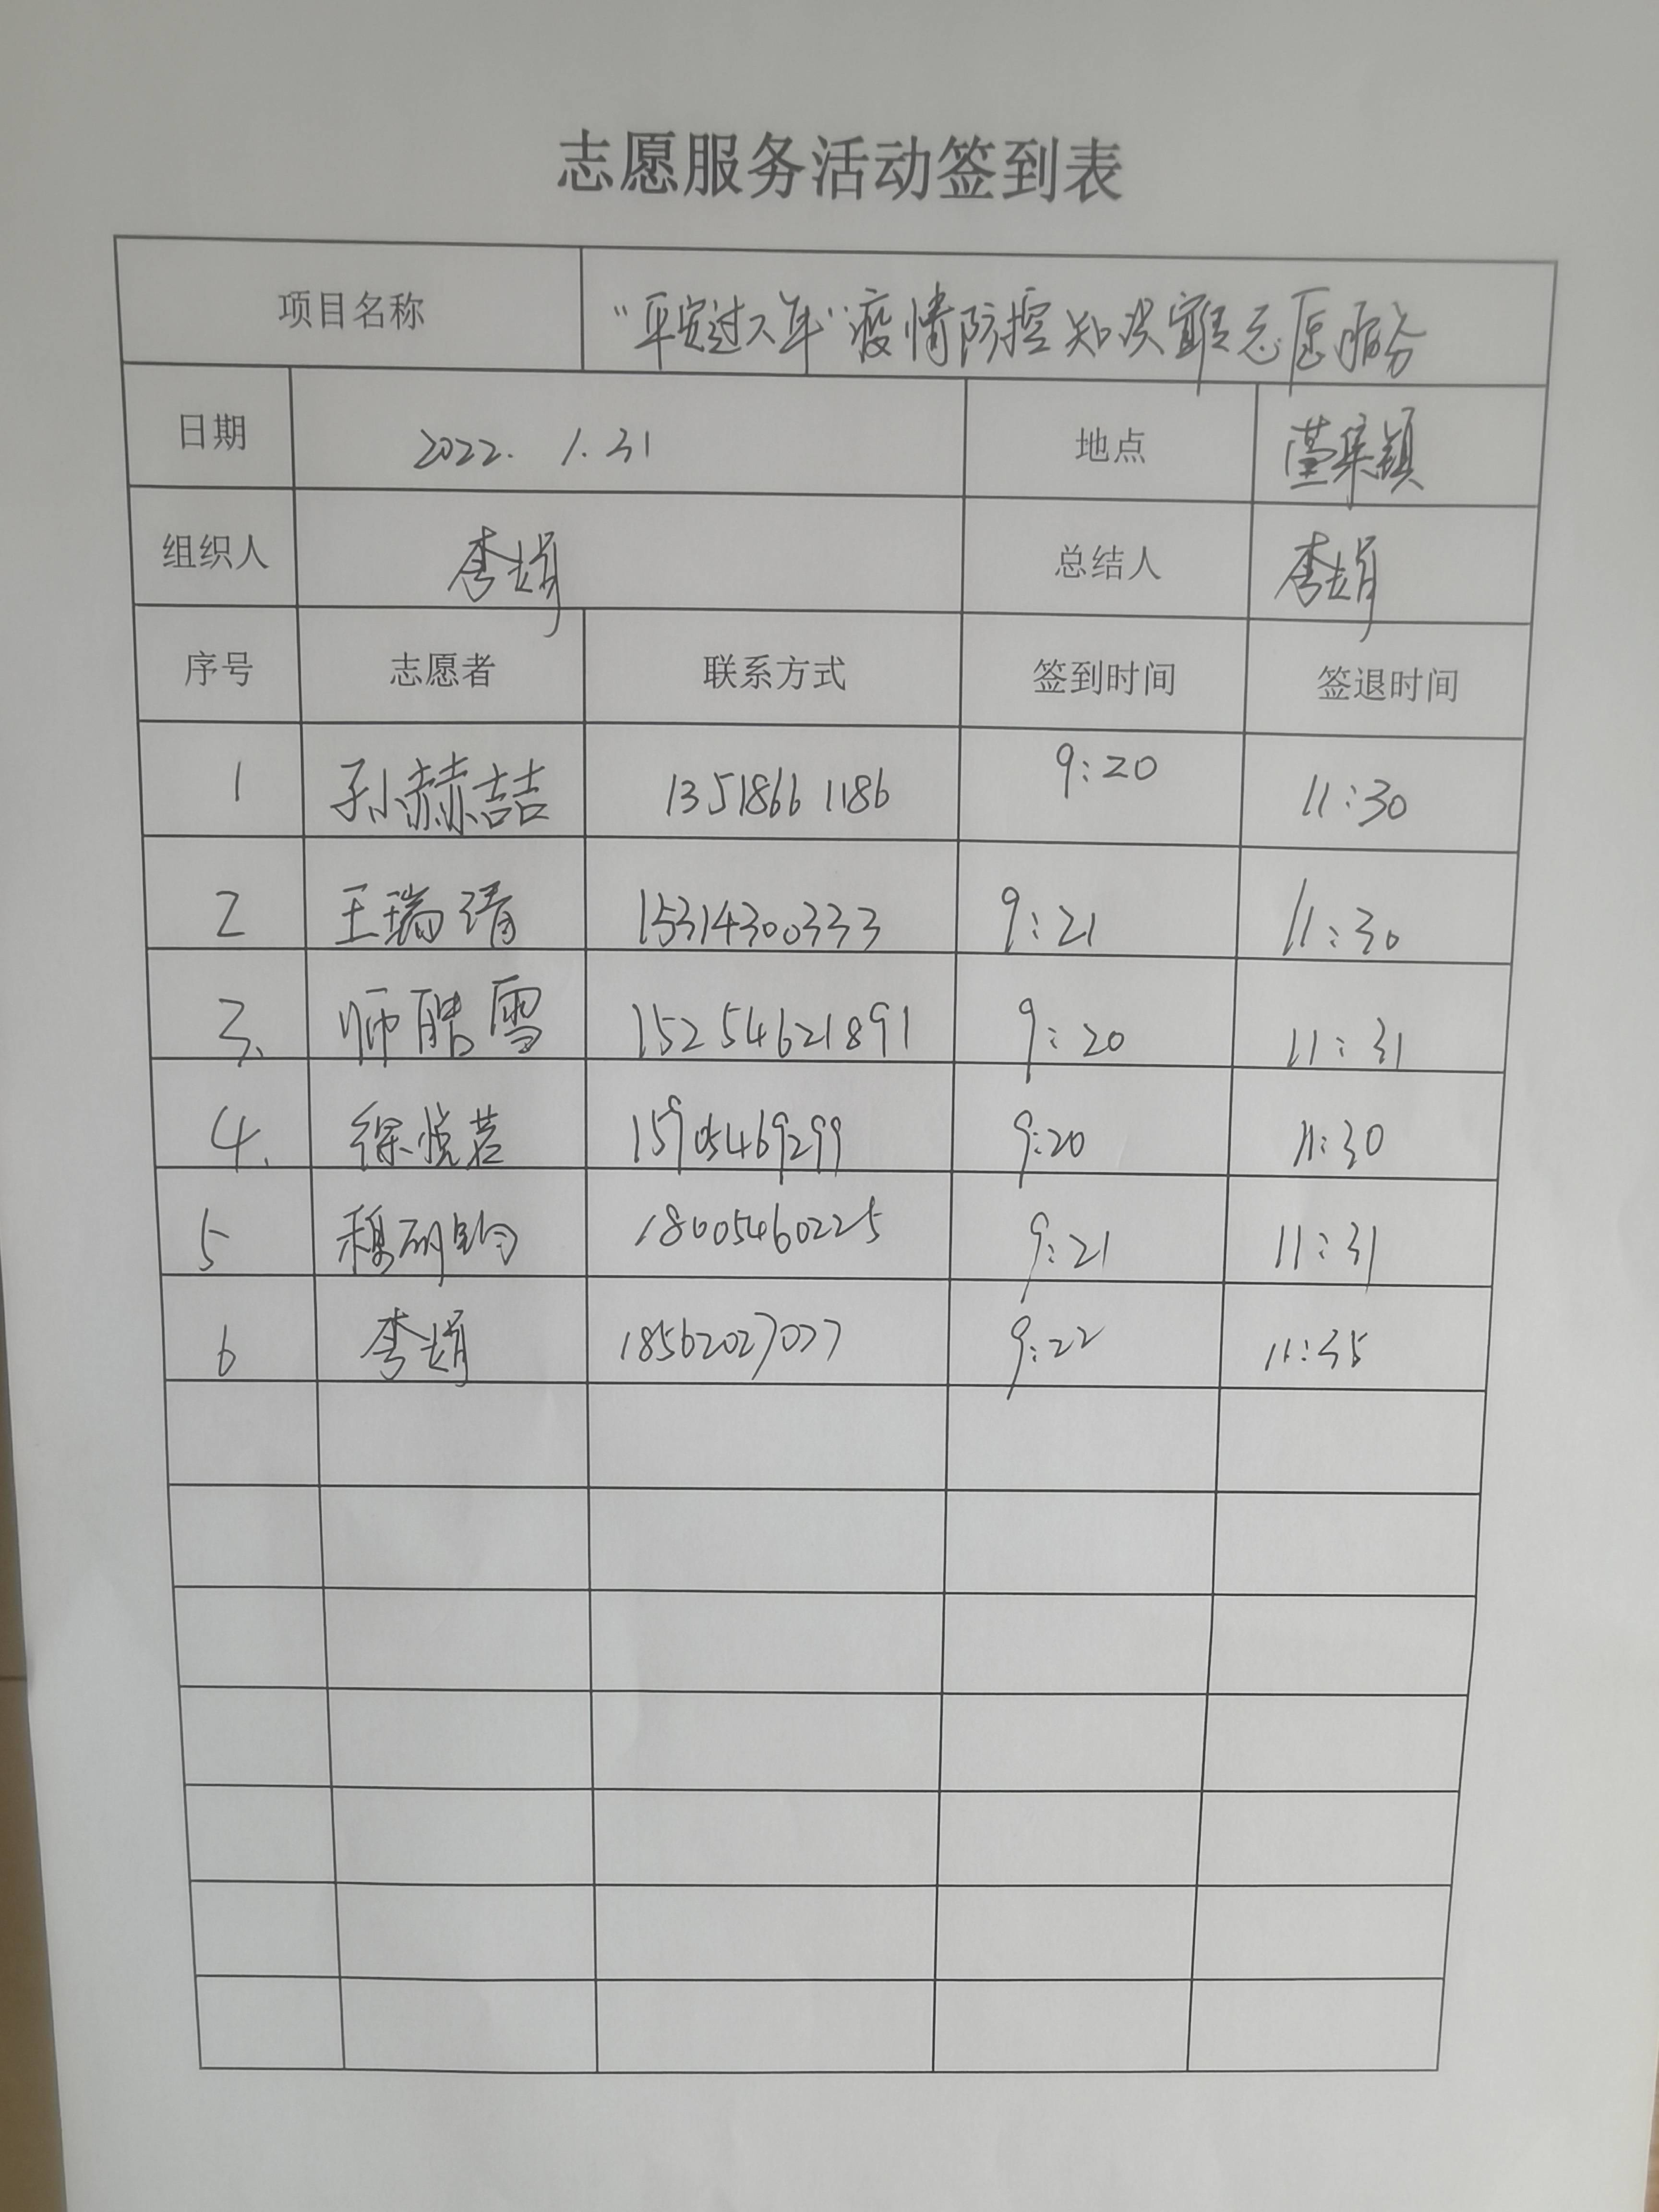 志愿服务活动签到表
项目名称 "平安过大年"疫情防控知识宣传志愿服务
日期 2022. 1.31 地点 董集镇
组织人 李娟 总结人 李娟
序号 志愿者 联系方式 签到时间 签退时间
1 孙赫喆 13518661186 9:20 11:30
2 王瑞清 15314300333 9:21 11:30
3. 师皓雪 15254621891 9:20 11:31
4. 徐悦茗 15905469299 9:20 11:30
5 穆硕钧 18005460225 9:21 11:31
6 李娟 18562027077 9:22 11:35